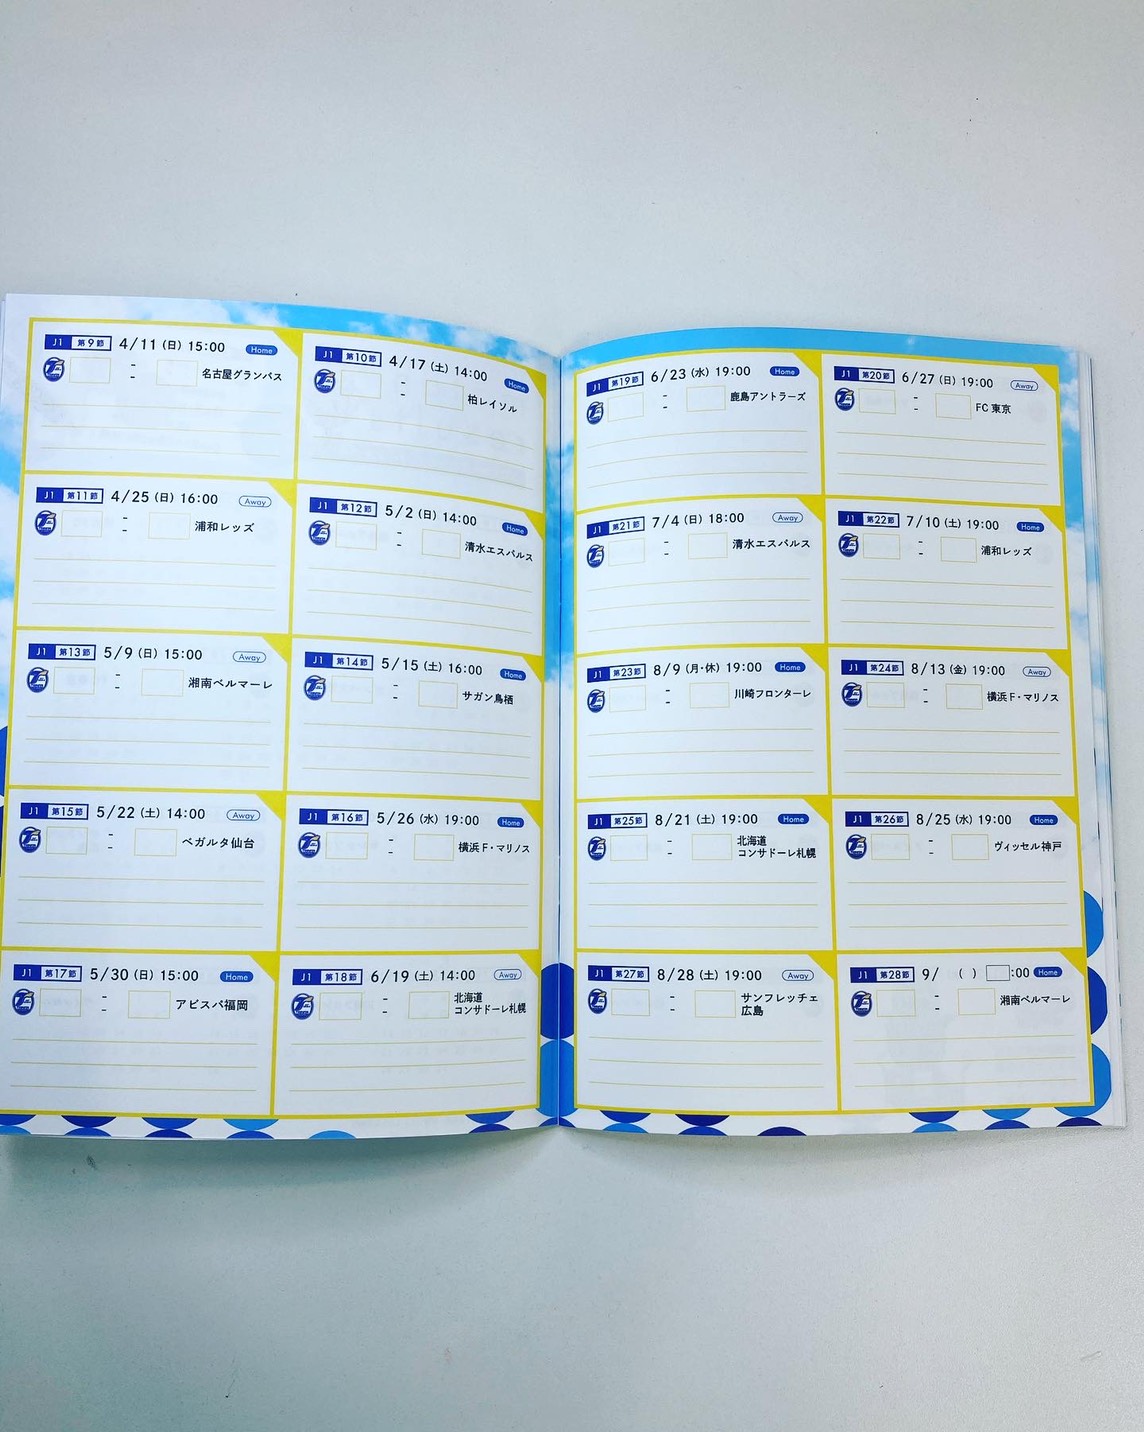 J1 第9節 4/11 (日) 15:00 Home
- 名古屋グランパス
-
J1 第10節 4/17 (土) 14:00 Home
- 柏レイソル
-
J1 第11節 4/25 (日) 16:00 Away
- 浦和レッズ
-
J1 第12節 5/2 (日) 14:00 Home
- 清水エスパルス
-
J1 第13節 5/9 (日) 15:00 Away
- 湘南ベルマーレ
-
J1 第14節 5/15 (土) 16:00 Home
- サガン鳥栖
-
J1 第15節 5/22 (土) 14:00 Away
- ベガルタ仙台
-
J1 第16節 5/26 (水) 19:00 Home
- 横浜F・マリノス
-
J1 第17節 5/30 (日) 15:00 Home
- アビスパ福岡
-
J1 第18節 6/19 (土) 14:00 Away
- 北海道
- コンサドーレ札幌
J1 第19節 6/23 (水) 19:00 Home
- 鹿島アントラーズ
-
J1 第20節 6/27 (日) 19:00 Away
- FC東京
-
J1 第21節 7/4 (日) 18:00 Away
- 清水エスパルス
-
J1 第22節 7/10 (土) 19:00 Home
- 浦和レッズ
-
J1 第23節 8/9 (月・休) 19:00 Home
- 川崎フロンターレ
-
J1 第24節 8/13 (金) 19:00 Away
- 横浜F・マリノス
-
J1 第25節 8/21 (土) 19:00 Home
- 北海道
- コンサドーレ札幌
J1 第26節 8/25 (水) 19:00 Home
- ヴィッセル神戸
-
J1 第27節 8/28 (土) 19:00 Away
- サンフレッチェ
- 広島
J1 第28節 9/ ( ) :00 Home
- 湘南ベルマーレ
-